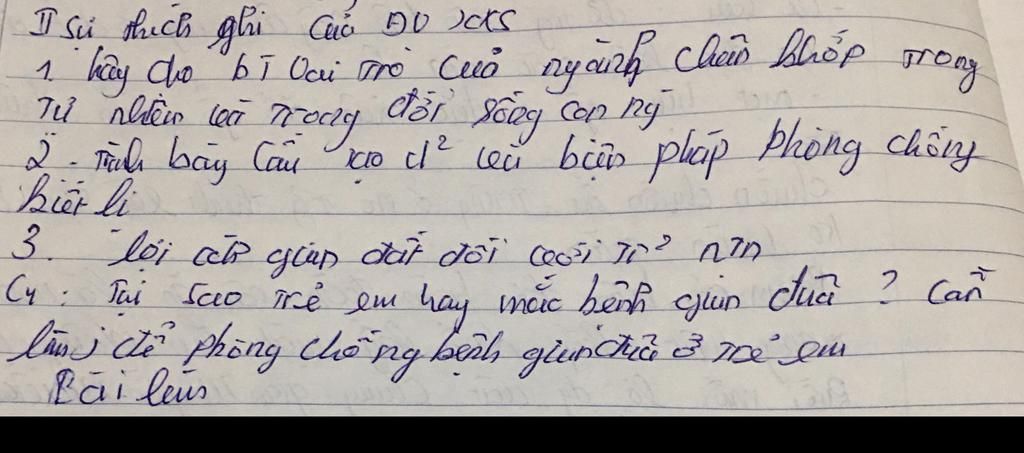 II Sự thích ghi của ĐV XKS
1 hãy cho bĩ vai trò của ngành chân khớp trong
tự nhiên và trong đời sống con ng
2 - Trình bày cấu tạo d² và biện pháp phòng chống
kiết lị
3. lợi ích giun đất đối với tr² nTn
C4 : Tại sao trẻ em hay mắc bệnh giun đũa ? Cần
làm j để phòng chống bệnh giun đũa ở trẻ em
Bài làm